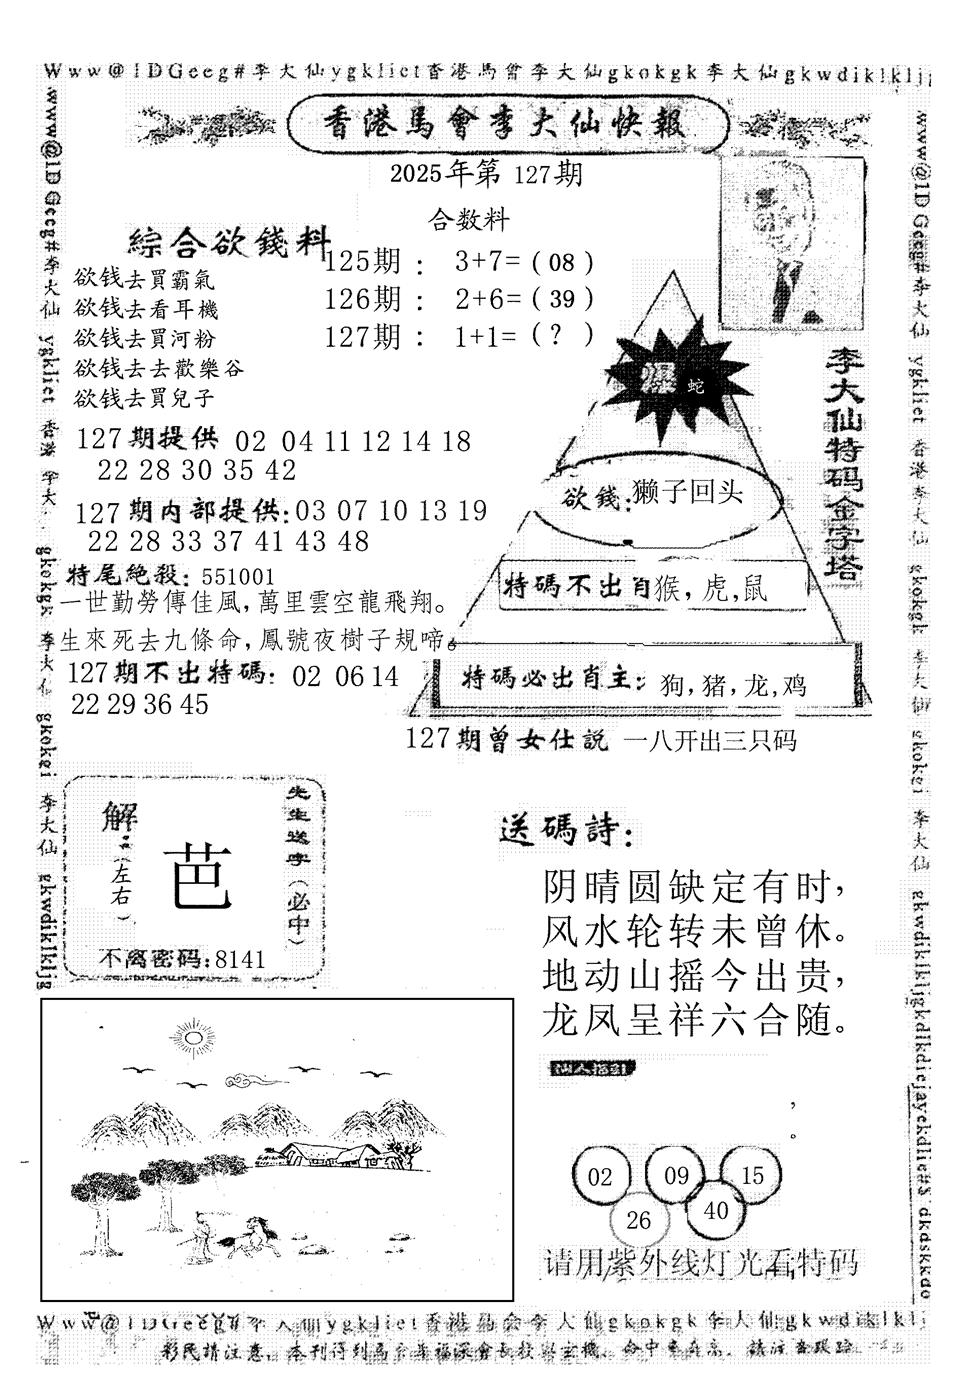 Www@1DGeeg#李大仙ygklict香港馬會李大仙gkokgk李大仙gkwdiklkljg
香港馬會李大仙快報
2025年第 127期
合数料
綜合欲錢料
125期 ： 3+7= ( 08 )
126期 ： 2+6= ( 39 )
127期 ： 1+1= ( ? )
欲钱去買霸氣
欲钱去看耳機
欲钱去買河粉
欲钱去去歡樂谷
欲钱去買兒子
127期提供 02 04 11 12 14 18
22 28 30 35 42
127期内部提供:03 07 10 13 19
22 28 33 37 41 43 48
特尾絶殺: 551001
一世勤勞傳佳風,萬里雲空龍飛翔。
生來死去九條命,鳳號夜樹子規啼。
127期不出特碼: 02 06 14
22 29 36 45
李大仙特码金字塔
爆 蛇
欲錢:獭子回头
特碼不出肖猴,虎,鼠
特碼必出肖主: 狗,猪,龙,鸡
127期曾女仕説 一八开出三只码
解
(左右)
芭
先生送字(必中)
不离密码:8141
送碼詩:
阴晴圆缺定有时,
风水轮转未曾休。
地动山摇今出贵,
龙凤呈祥六合随。
仙人指引
,
。
02 09 15
26 40
请用紫外线灯光看特码
Www@1DGeeg#李大仙ygklict香港馬会李大仙gkokgk李大仙gkwdiklklj